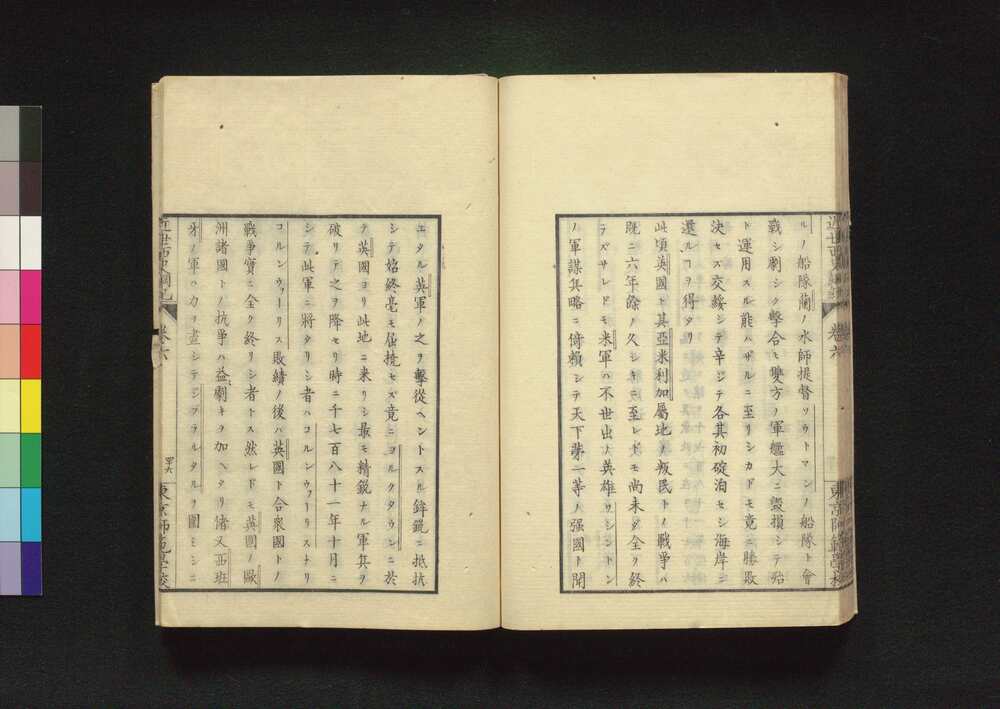 ルノ船隊蘭ノ水師提督ソウトマンノ船隊ト會
戰シ劇シク擊合ヒ雙方ノ軍艦大ニ毀損シテ殆
ト運用スル能ハザルニ至リシカドモ竟ニ勝敗
決セズ交綏シテ辛ジテ各其初碇泊セシ海岸ニ
還ルコヲ得タリ
此頃英國ト其亞米利加屬地ノ叛民トノ戰爭ハ
既ニ六年餘ノ久シキニ至レドモ尚未ダ全ク終
ラズサレドモ米軍ハ不世出ノ英雄ワシントン
ノ軍謀其略ニ倚賴シテ天下第一等ノ强國ト聞
近世西史綱紀 卷六
東京師範學校
エタル英軍ノ之ヲ擊從ヘントスル鉾鋭ニ抵抗
シテ始終毫モ屈撓セズ竟ニヨルクタウンニ於
テ英國ヨリ此地ニ来リシ最モ精鋭ナル軍兵ヲ
破リテ之ヲ降セリ時ニ千七百八十一年十月ニ
シテ此軍ニ將タリシ者ハコルンワァーリスナリ
コルンワァーリス敗績ノ後ハ英國ト合衆國トノ
戰爭實ニ全ク終リシ者トス然レドモ英國ノ歐
洲諸國トノ抗爭ハ益劇キヲ加ヘタリ偖又西班
牙ノ軍ハ力ヲ盡シテジブラルタルヲ圍ミシニ
近世西史綱紀 卷六
四十六
東京師範學校